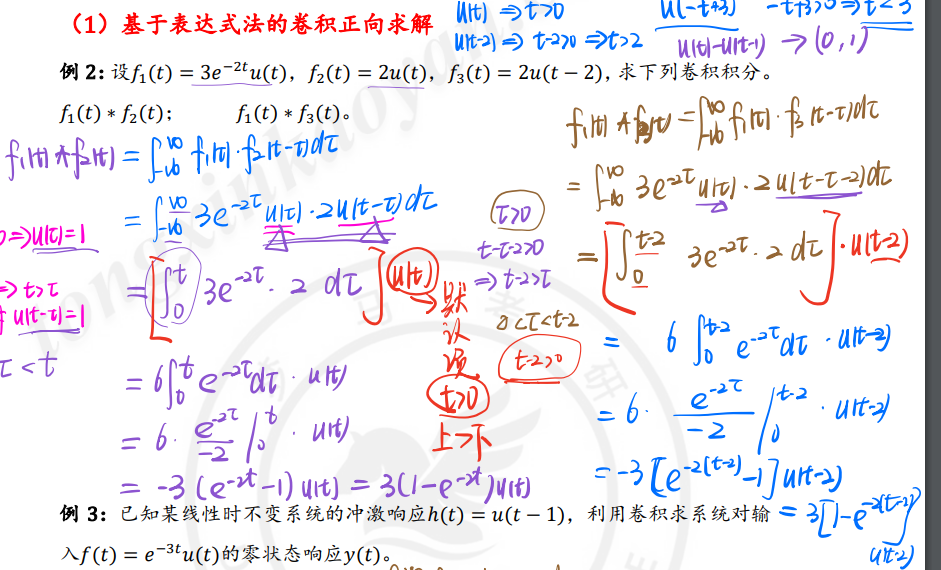 （1）基于表达式法的卷积正向求解
u(t) ⇒ t>0
u(t-2) ⇒ t-2>0 ⇒ t>2
u(-t+3) -t+3>0 ⇒ t<3
u(t)-u(t-1) → (0,1)
例 2: 设f₁(t) = 3e^{-2t}u(t)，f₂(t) = 2u(t)，f₃(t) = 2u(t − 2)，求下列卷积积分。
f₁(t) ∗ f₂(t)； f₁(t) ∗ f₃(t)。
f₁(t) * f₂(t) = ∫_{-∞}^{∞} f₁(τ)·f₂(t-τ)dτ
= ∫_{-∞}^{∞} 3e^{-2τ} u(τ)·2u(t-τ)dτ
= [∫_0^t 3e^{-2τ}·2 dτ] u(t)
= 6∫_0^t e^{-2τ}dτ · u(t)
= 6· e^{-2τ}/-2 |_0^t · u(t)
= -3(e^{-2t}-1)u(t) = 3(1-e^{-2t})u(t)
⇒u(τ)=1
⇒ t>τ
u(t-τ)=1
τ<t
→ 默认项
t>0
上>下
τ>0
t-τ-2>0
⇒ t-2>τ
0<τ<t-2
t-2>0
f₁(t) * f₃(t) = ∫_{-∞}^{∞} f₁(τ)·f₃(t-τ)dτ
= ∫_{-∞}^{∞} 3e^{-2τ} u(τ)·2u(t-τ-2)dτ
= [∫_0^{t-2} 3e^{-2τ}·2 dτ]·u(t-2)
= 6∫_0^{t-2} e^{-2τ}dτ · u(t-2)
= 6· e^{-2τ}/-2 |_0^{t-2} · u(t-2)
= -3[e^{-2(t-2)}-1]u(t-2)
= 3[1-e^{-2(t-2)}]
u(t-2)
例 3: 已知某线性时不变系统的冲激响应h(t) = u(t − 1)，利用卷积求系统对输
入f(t) = e^{-3t}u(t)的零状态响应y(t)。